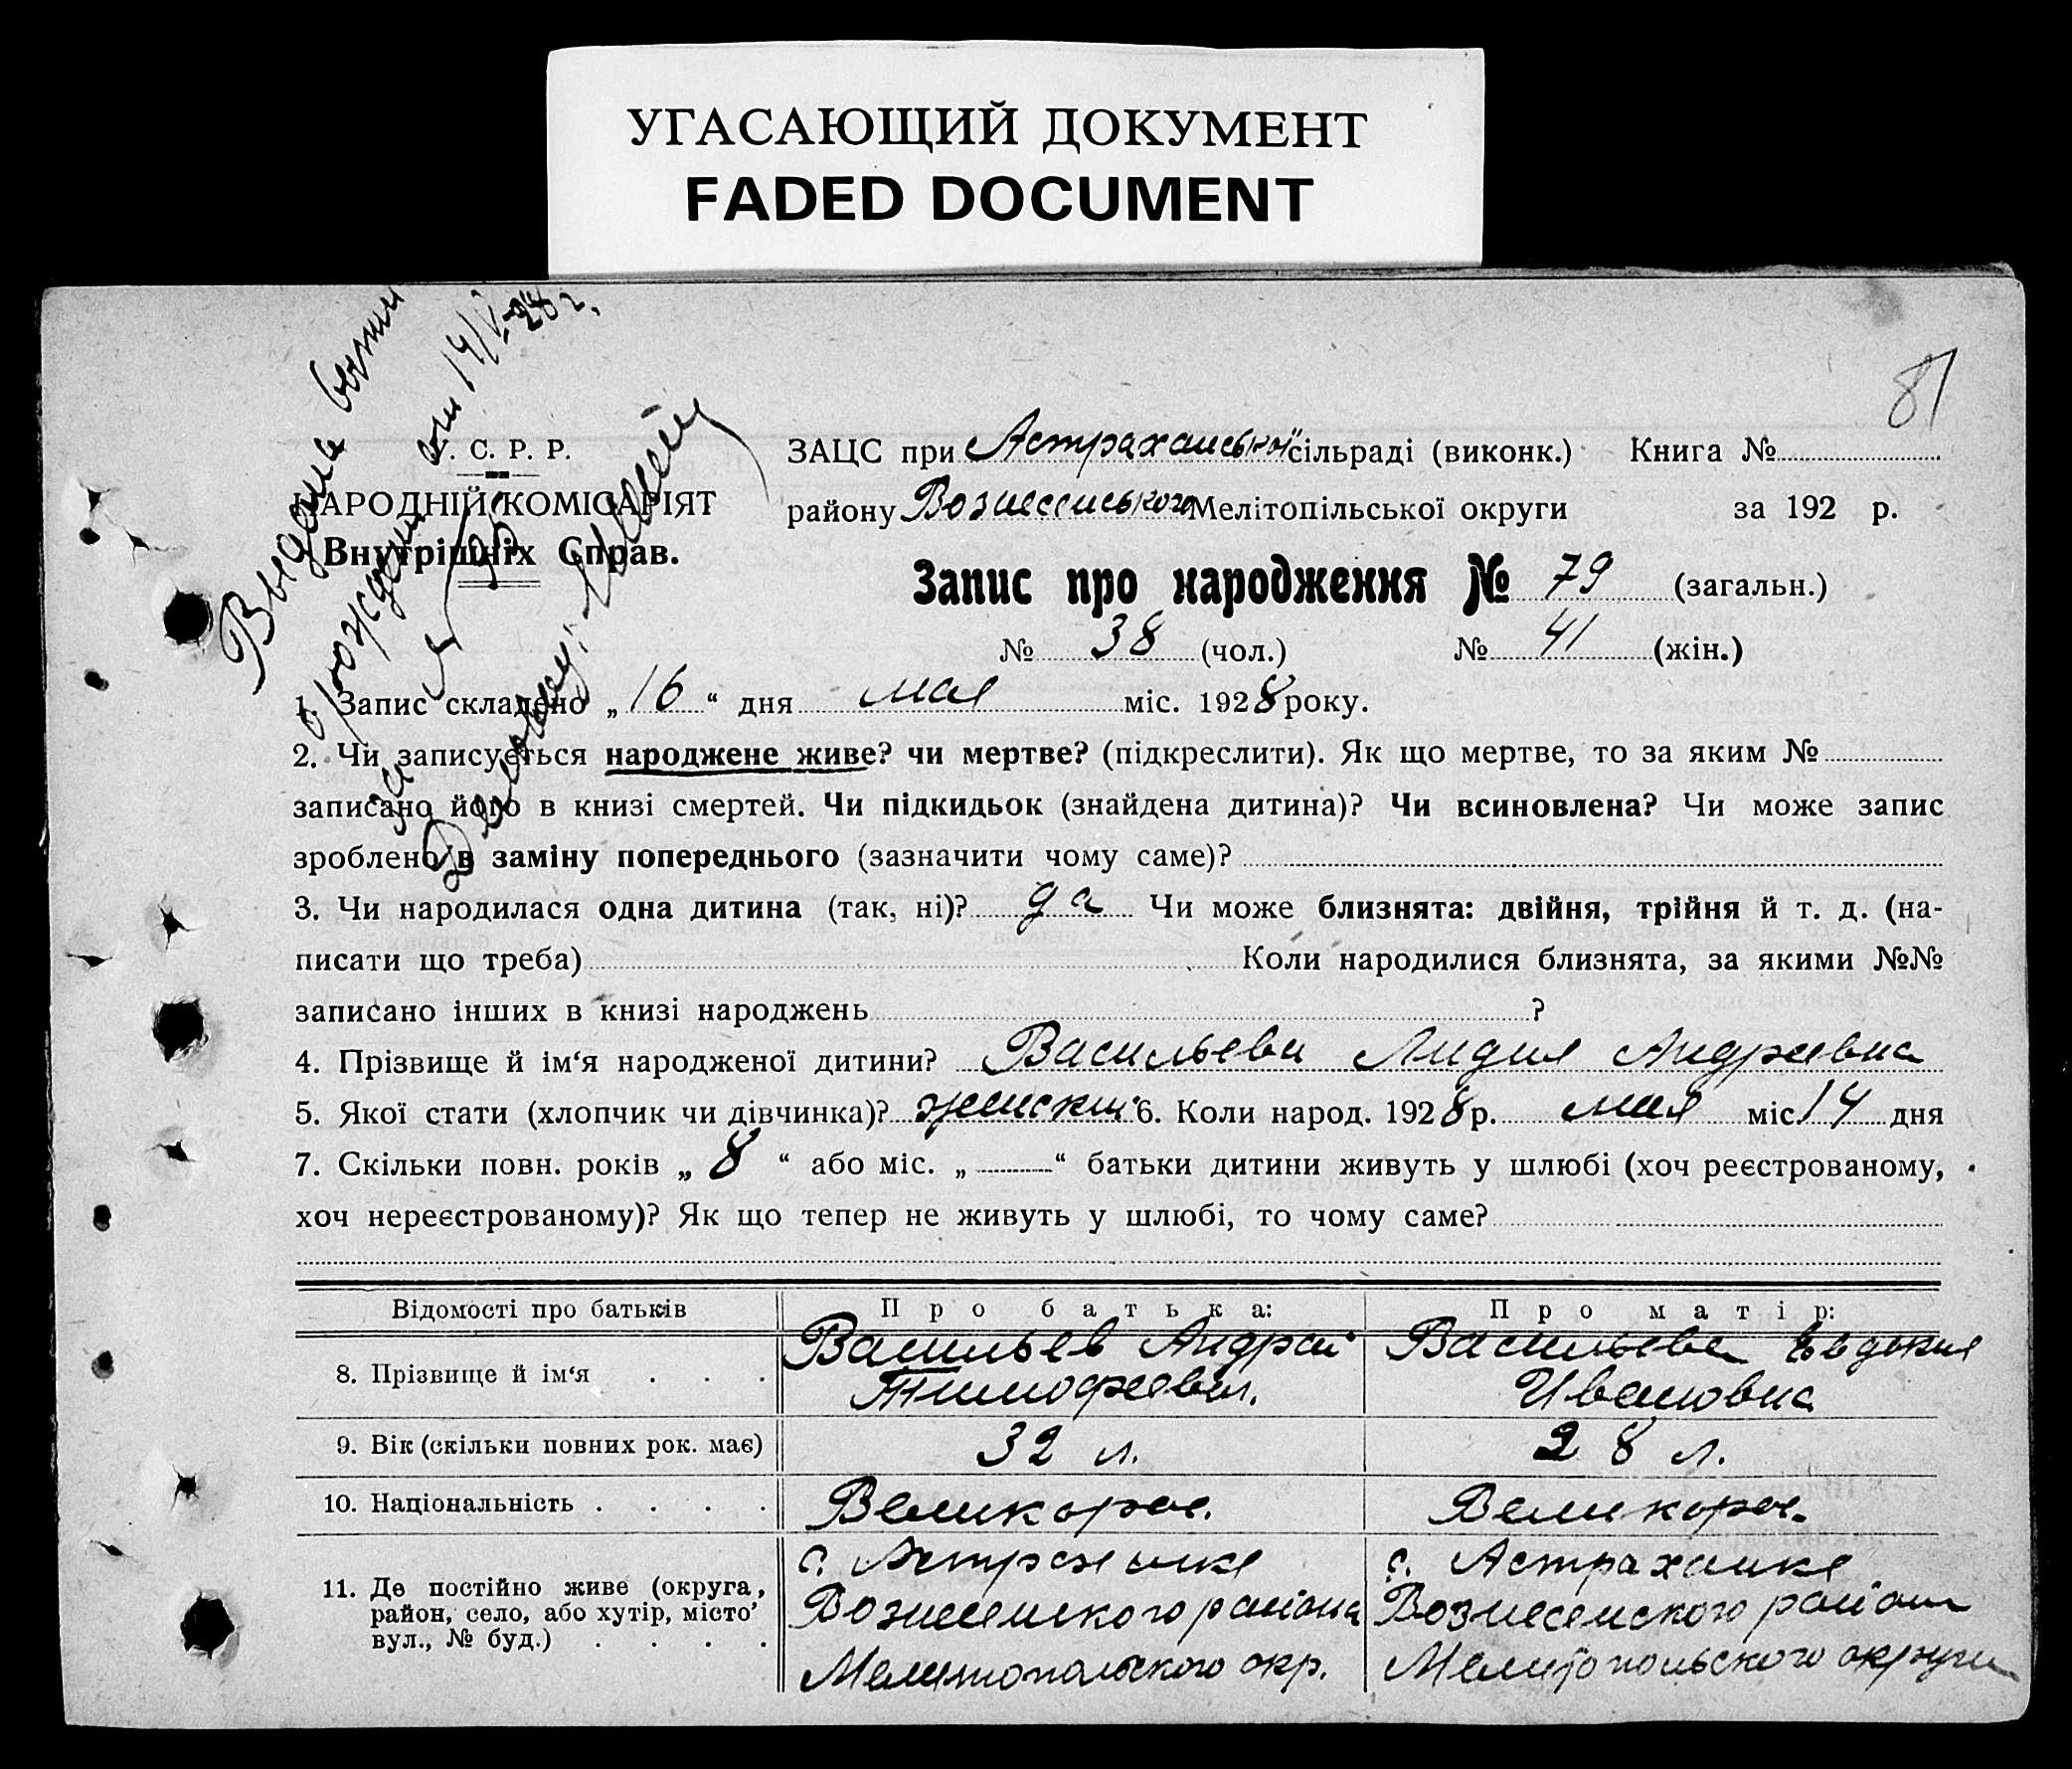 УГАСАЮЩИЙ ДОКУМЕНТ
FADED DOCUMENT
81
Выдана
о рождении
за № 38
У. С. Р. Р.
НАРОДНІЙ КОМІСАРІЯТ
Внутрішніх Справ.
ЗАЦС при Астраханської сільраді (виконк.) Книга №
району Вознесенського Мелітопільської округи за 192 р.
Запис про народження № 79 (загальн.)
№ 38 (чол.) № 41 (жін.)
1. Запис складено „ 16 “ дня мая міс. 1928 року.
2. Чи записується народжене живе? чи мертве? (підкреслити). Як що мертве, то за яким №
записано його в книзі смертей. Чи підкидьок (знайдена дитина)? Чи всиновлена? Чи може запис
зроблено в заміну попереднього (зазначити чому саме)?
3. Чи народилася одна дитина (так, ні)? да Чи може близнята: двійня, трійня й т. д. (на-
писати що треба) Коли народилися близнята, за якими №№
записано інших в книзі народжень ?
4. Прізвище й ім‘я народженої дитини? Васильева Лидия Андреевна
5. Якої стати (хлопчик чи дівчинка)? женский 6. Коли народ. 1928 р. мая міс. 14 дня
7. Скільки повн. років „ 8 “ або міс. „ — “ батьки дитини живуть у шлюбі (хоч реєстрованому,
хоч нереєстрованому)? Як що тепер не живуть у шлюбі, то чому саме?
Відомості про батьків Про батька: Про матір:
8. Прізвище й ім‘я . . . Васильев Андрей Васильева Евдокия
Тимофеевич. Ивановна
9. Вік (скільки повних рок. має) 32 л. 28 л.
10. Національність . . . . Великорос. Великорос.
11. Де постійно живе (округа, с. Астраханке с. Астраханке
район, село, або хутір, місто Вознесенского района Вознесенского района
вул., № буд.) . . . . Мелитопольского окр. Мелитопольского округи